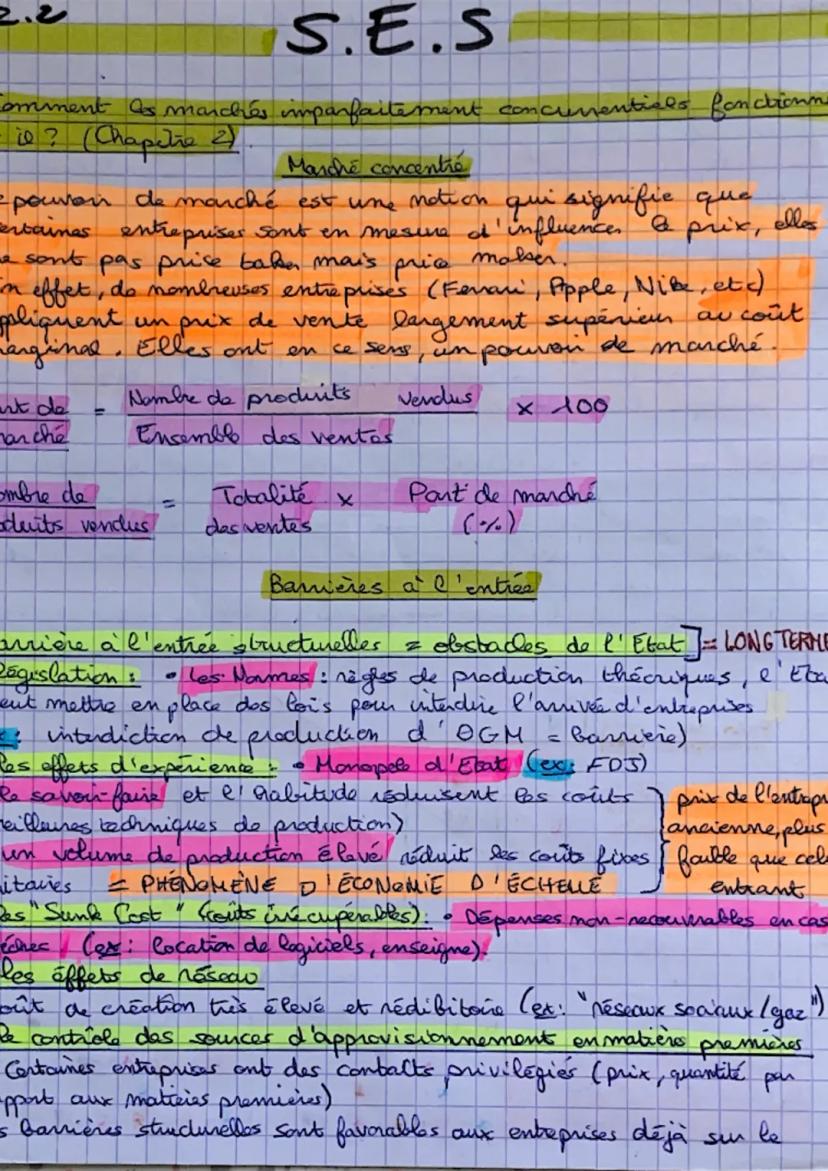 2.2
S.E.S
omment les marchés imparfaitement concurrentiels fonctionne
il ? (Chapitre 2)
Marché concentré
e pouvoir de marché est une notion qui signifie que
ertaines entreprises sont en mesure d'influencer le prix, elles
e sont pas price taker mais price maker.
n effet, de nombreuses entreprises (Ferrari, Apple, Nike, etc)
ppliquent un prix de vente largement supérieur au coût
arginal. Elles ont en ce sens, un pouvoir de marché.
art de = Nombre de produits vendus x 100
arché Ensemble des ventes
ombre de = Totalité x Part de marché
oduits vendus des ventes (%)
Barrières à l'entrée
arrière à l'entrée structurelles = obstacles de l'Etat ] = LONG TERME
législation : • les Normes : règles de production théoriques, l'Eta
eut mettre en place des lois pour interdire l'arrivée d'entreprises
x : interdiction de production d'OGM = barrière)
les effets d'expérience : • Monopole d'Etat (ex : FDJ)
le savoir-faire et l'habitude réduisent les coûts
eilleures techniques de production)
un volume de production élevé réduit les coûts fixes
itaires = PHÉNOMÈNE D'ÉCONOMIE D'ÉCHELLE
prix de l'entrepr
ancienne, plus
faible que cel
entrant
es "Sunk Cost" (coûts irrécupérables) : • Dépenses non-recouvrables en cas
échec (ex : location de logiciels, enseigne).
les effets de réseau
oût de création très élevé et rédibitoire (ex : "réseaux sociaux/gaz")
e contrôle des sources d'approvisionnement en matière premières
Certaines entreprises ont des contacts privilégiés (prix, quantité par
pport aux matières premières)
s barrières structurelles sont favorables aux entreprises déjà sur le